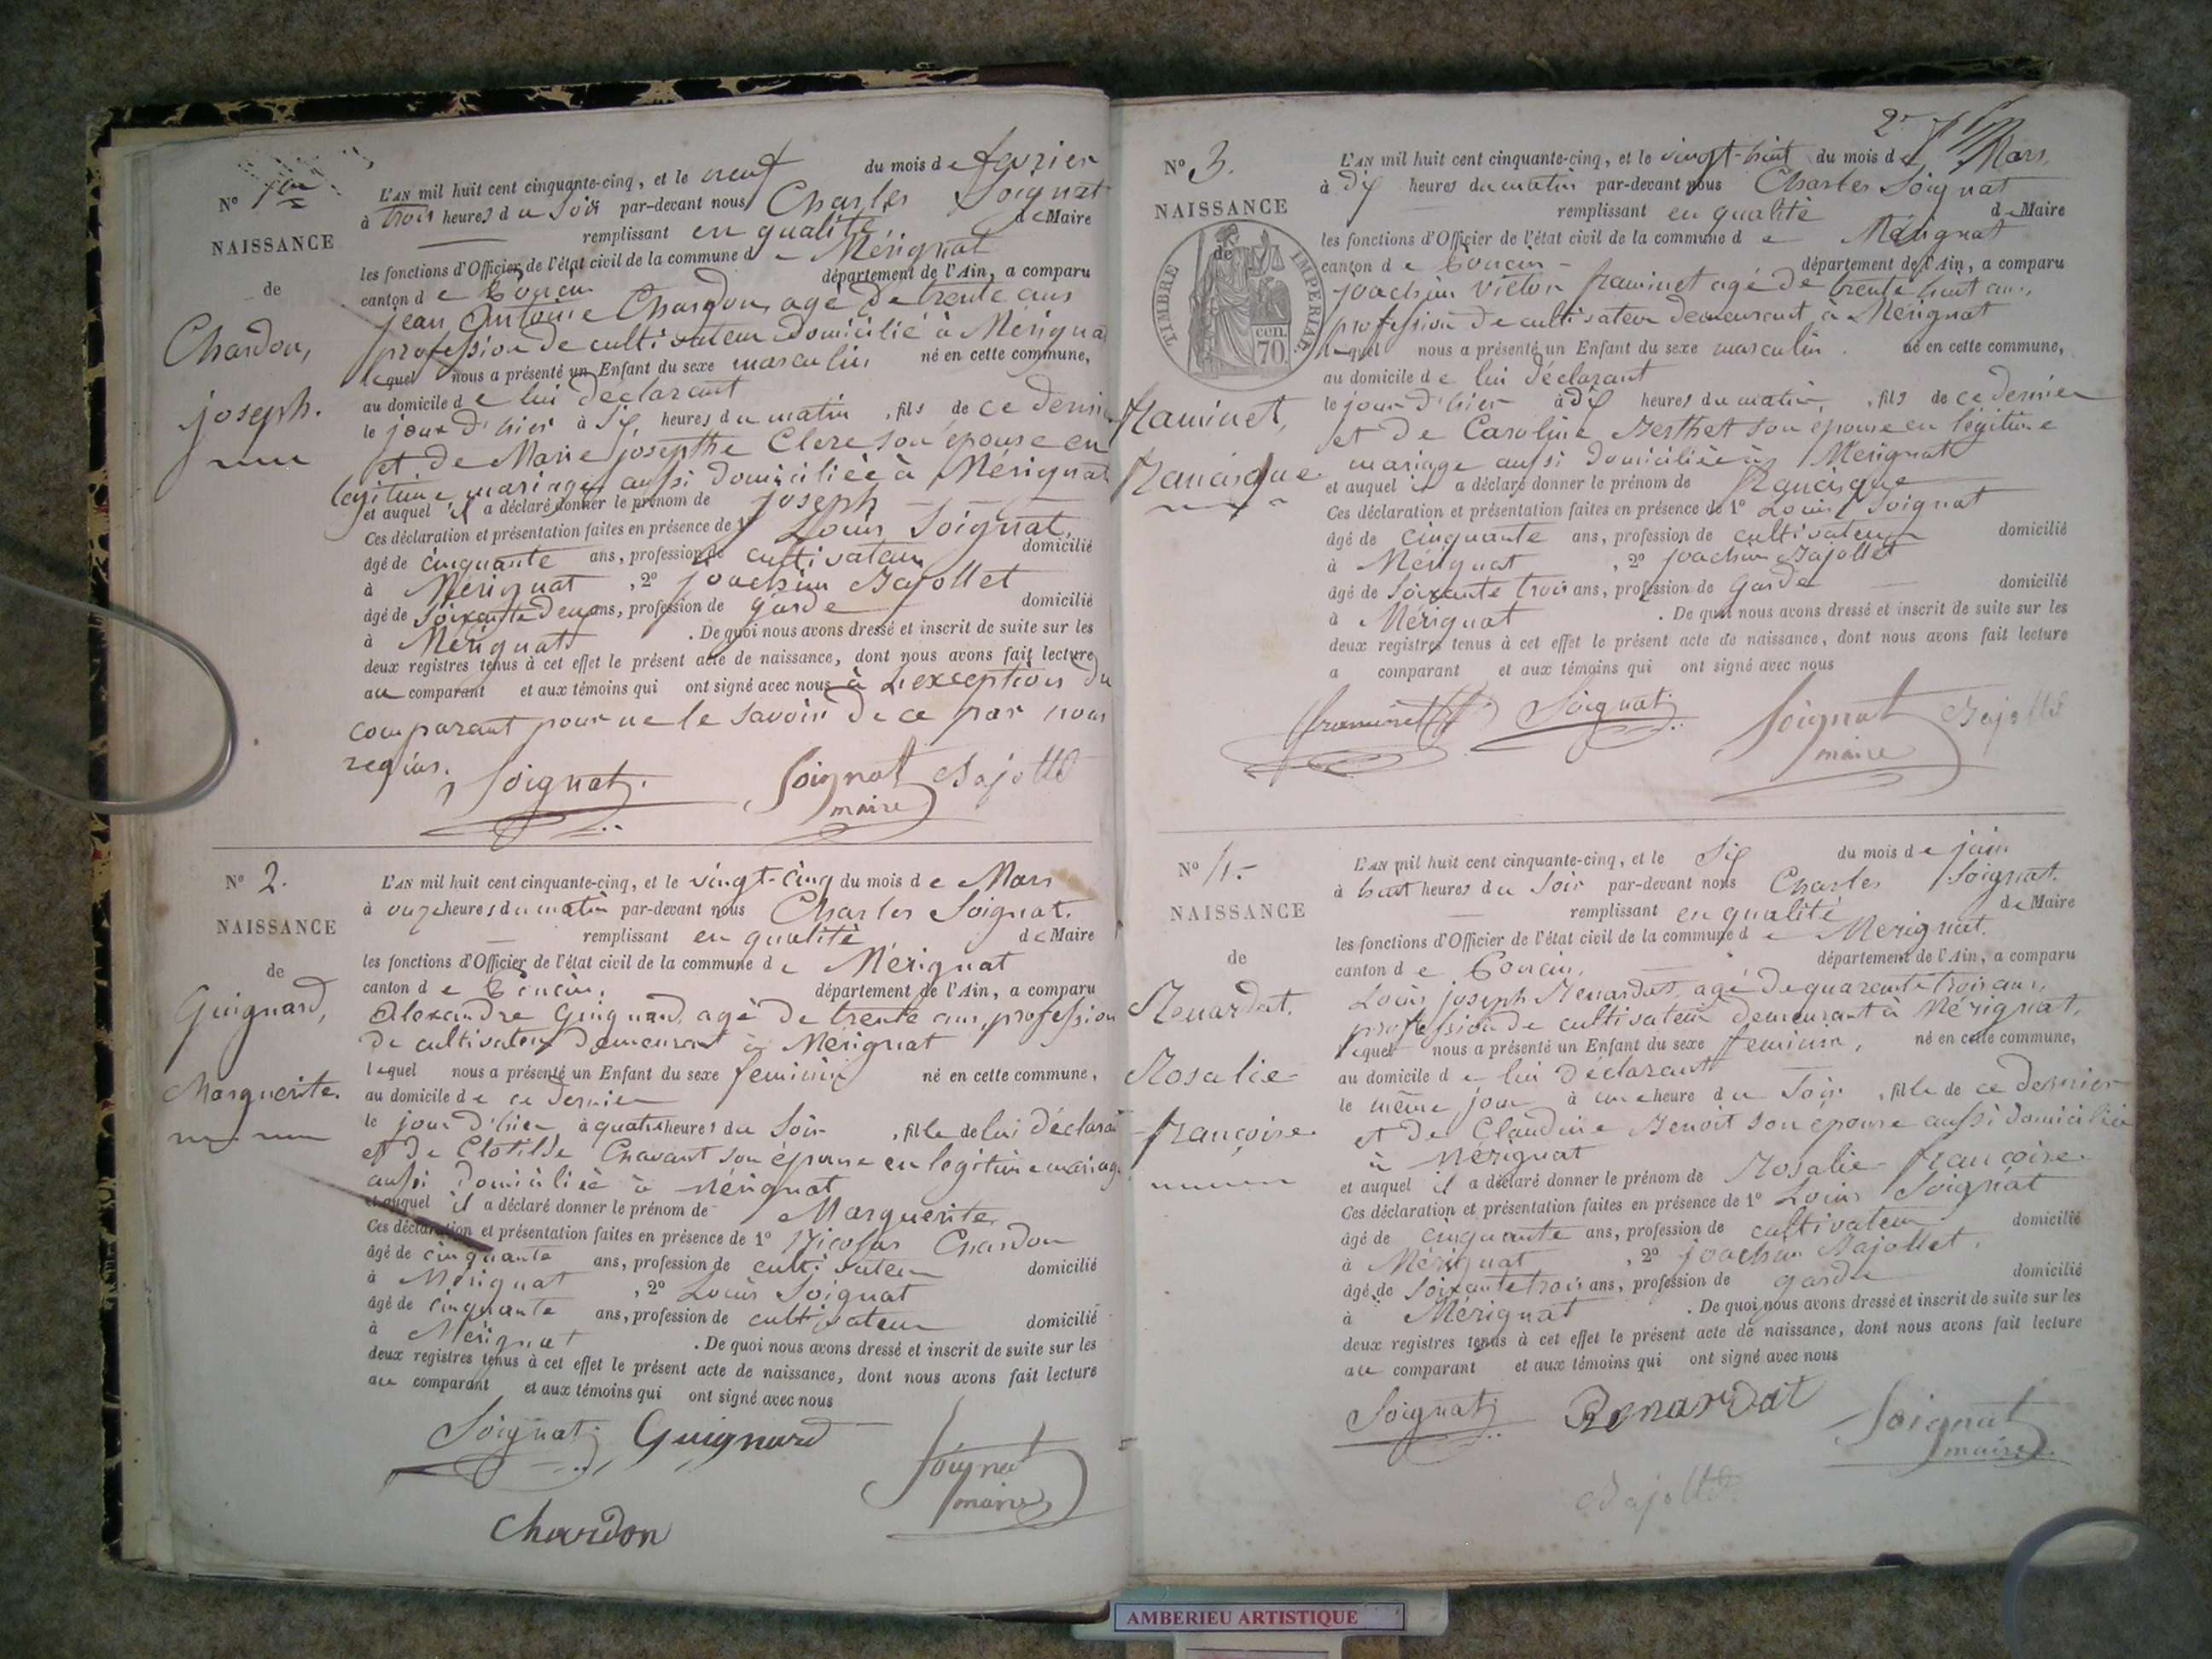 N° 1er
NAISSANCE
de
Chardon,
joseph.
L'AN mil huit cent cinquante-cinq, et le neuf du mois de fevrier
à trois heures du soir par-devant nous Charles Soignat
remplissant en qualité de Maire
les fonctions d'Officier de l'état civil de la commune de Mérignat
canton de Poncin département de l'Ain, a comparu
jean Antoine Chardon, agé de trente ans
profession de cultivateur domicilié à Mérignat
lequel nous a présenté un Enfant du sexe masculin né en cette commune,
au domicile de lui déclarant
le jour d'hier à six heures du matin, fils de ce dernier
et de Marie josephte Clerc son épouse en
legitime mariage aussi domiciliée à Mérignat
et auquel il a déclaré donner le prénom de joseph
Ces déclaration et présentation faites en présence de 1° Louis Soignat,
âgé de cinquante ans, profession de cultivateur domicilié
à Mérignat, 2° joachim Bajollet
âgé de soixante deux ans, profession de garde domicilié
à Mérignat. De quoi nous avons dressé et inscrit de suite sur les
deux registres tenus à cet effet le présent acte de naissance, dont nous avons fait lecture
au comparant et aux témoins qui ont signé avec nous à l'exception du
comparant pour ne le savoir de ce par nous
requis.
Soignat. Soignat Bajollet
maire
N° 2.
NAISSANCE
de
Guignard,
Marguerite.
L'AN mil huit cent cinquante-cinq, et le vingt-cinq du mois de Mars
à onze heures du matin par-devant nous Charles Soignat.
remplissant en qualité de Maire
les fonctions d'Officier de l'état civil de la commune de Mérignat
canton de Poncin. département de l'Ain, a comparu
Alexandre Guignard, agé de trente ans, profession
de cultivateur demeurant à Mérignat
lequel nous a présenté un Enfant du sexe feminin né en cette commune,
au domicile de ce dernier
le jour d'hier à quatre heures du soir, fille de lui déclarant
et de Clotilde Chavant son epouse en legitime mariage
aussi domiciliée à Mérignat
et auquel il a déclaré donner le prénom de Marguerite
Ces déclaration et présentation faites en présence de 1° Nicolas Chardon
âgé de cinquante ans, profession de cultivateur domicilié
à Mérignat, 2° Louis Soignat
âgé de cinquante ans, profession de cultivateur domicilié
à Mérignat. De quoi nous avons dressé et inscrit de suite sur les
deux registres tenus à cet effet le présent acte de naissance, dont nous avons fait lecture
au comparant et aux témoins qui ont signé avec nous
Soignat Guignard Soignat
maire
Chardon
2e
N° 3.
NAISSANCE
de
TIMBRE IMPERIAL
70 cen.
Framinet,
Francisque.
L'AN mil huit cent cinquante-cinq, et le vingt-huit du mois de Mars
à dix heures du matin par-devant nous Charles Soignat
remplissant en qualité de Maire
les fonctions d'Officier de l'état civil de la commune de Mérignat
canton de Poncin département de l'Ain, a comparu
joachim victor framinet agé de trente huit ans,
profession de cultivateur demeurant à Mérignat
lequel nous a présenté un Enfant du sexe masculin. né en cette commune,
au domicile de lui déclarant
le jour d'hier à dix heures du matin, fils de ce dernier
et de Caroline Berthet son épouse en légitime
mariage aussi domiciliée à Mérignat
et auquel il a déclaré donner le prénom de francisque
Ces déclaration et présentation faites en présence de 1° Louis Soignat
âgé de cinquante ans, profession de cultivateur domicilié
à Mérignat, 2° joachim Bajollet
âgé de soixante trois ans, profession de garde domicilié
à Mérignat. De quoi nous avons dressé et inscrit de suite sur les
deux registres tenus à cet effet le présent acte de naissance, dont nous avons fait lecture
a comparant et aux témoins qui ont signé avec nous
framinet Soignat Soignat Bajollet
maire
N° 4.
NAISSANCE
de
Renardat.
Rosalie
françoise
L'AN mil huit cent cinquante-cinq, et le six du mois de juin
à huit heures du soir par-devant nous Charles Soignat.
remplissant en qualité de Maire
les fonctions d'Officier de l'état civil de la commune de Merignat.
canton de Poncin. département de l'Ain, a comparu
Louis joseph Renardat, agé de quarante trois ans,
profession de cultivateur demeurant à Mérignat,
lequel nous a présenté un Enfant du sexe feminin, né en cette commune,
au domicile de lui déclarant
le même jour à une heure du soir, fille de ce dernier
et de Claudine Benoit son epouse aussi domiciliée
à Mérignat
et auquel il a déclaré donner le prénom de Rosalie françoise
Ces déclaration et présentation faites en présence de 1° Louis Soignat
âgé de cinquante ans, profession de cultivateur domicilié
à Mérignat, 2° joachim Bajollet.
âgé de soixante trois ans, profession de garde domicilié
à Mérignat. De quoi nous avons dressé et inscrit de suite sur les
deux registres tenus à cet effet le présent acte de naissance, dont nous avons fait lecture
au comparant et aux témoins qui ont signé avec nous
Soignat Renardat Soignat
maire
Bajollet
AMBERIEU ARTISTIQUE